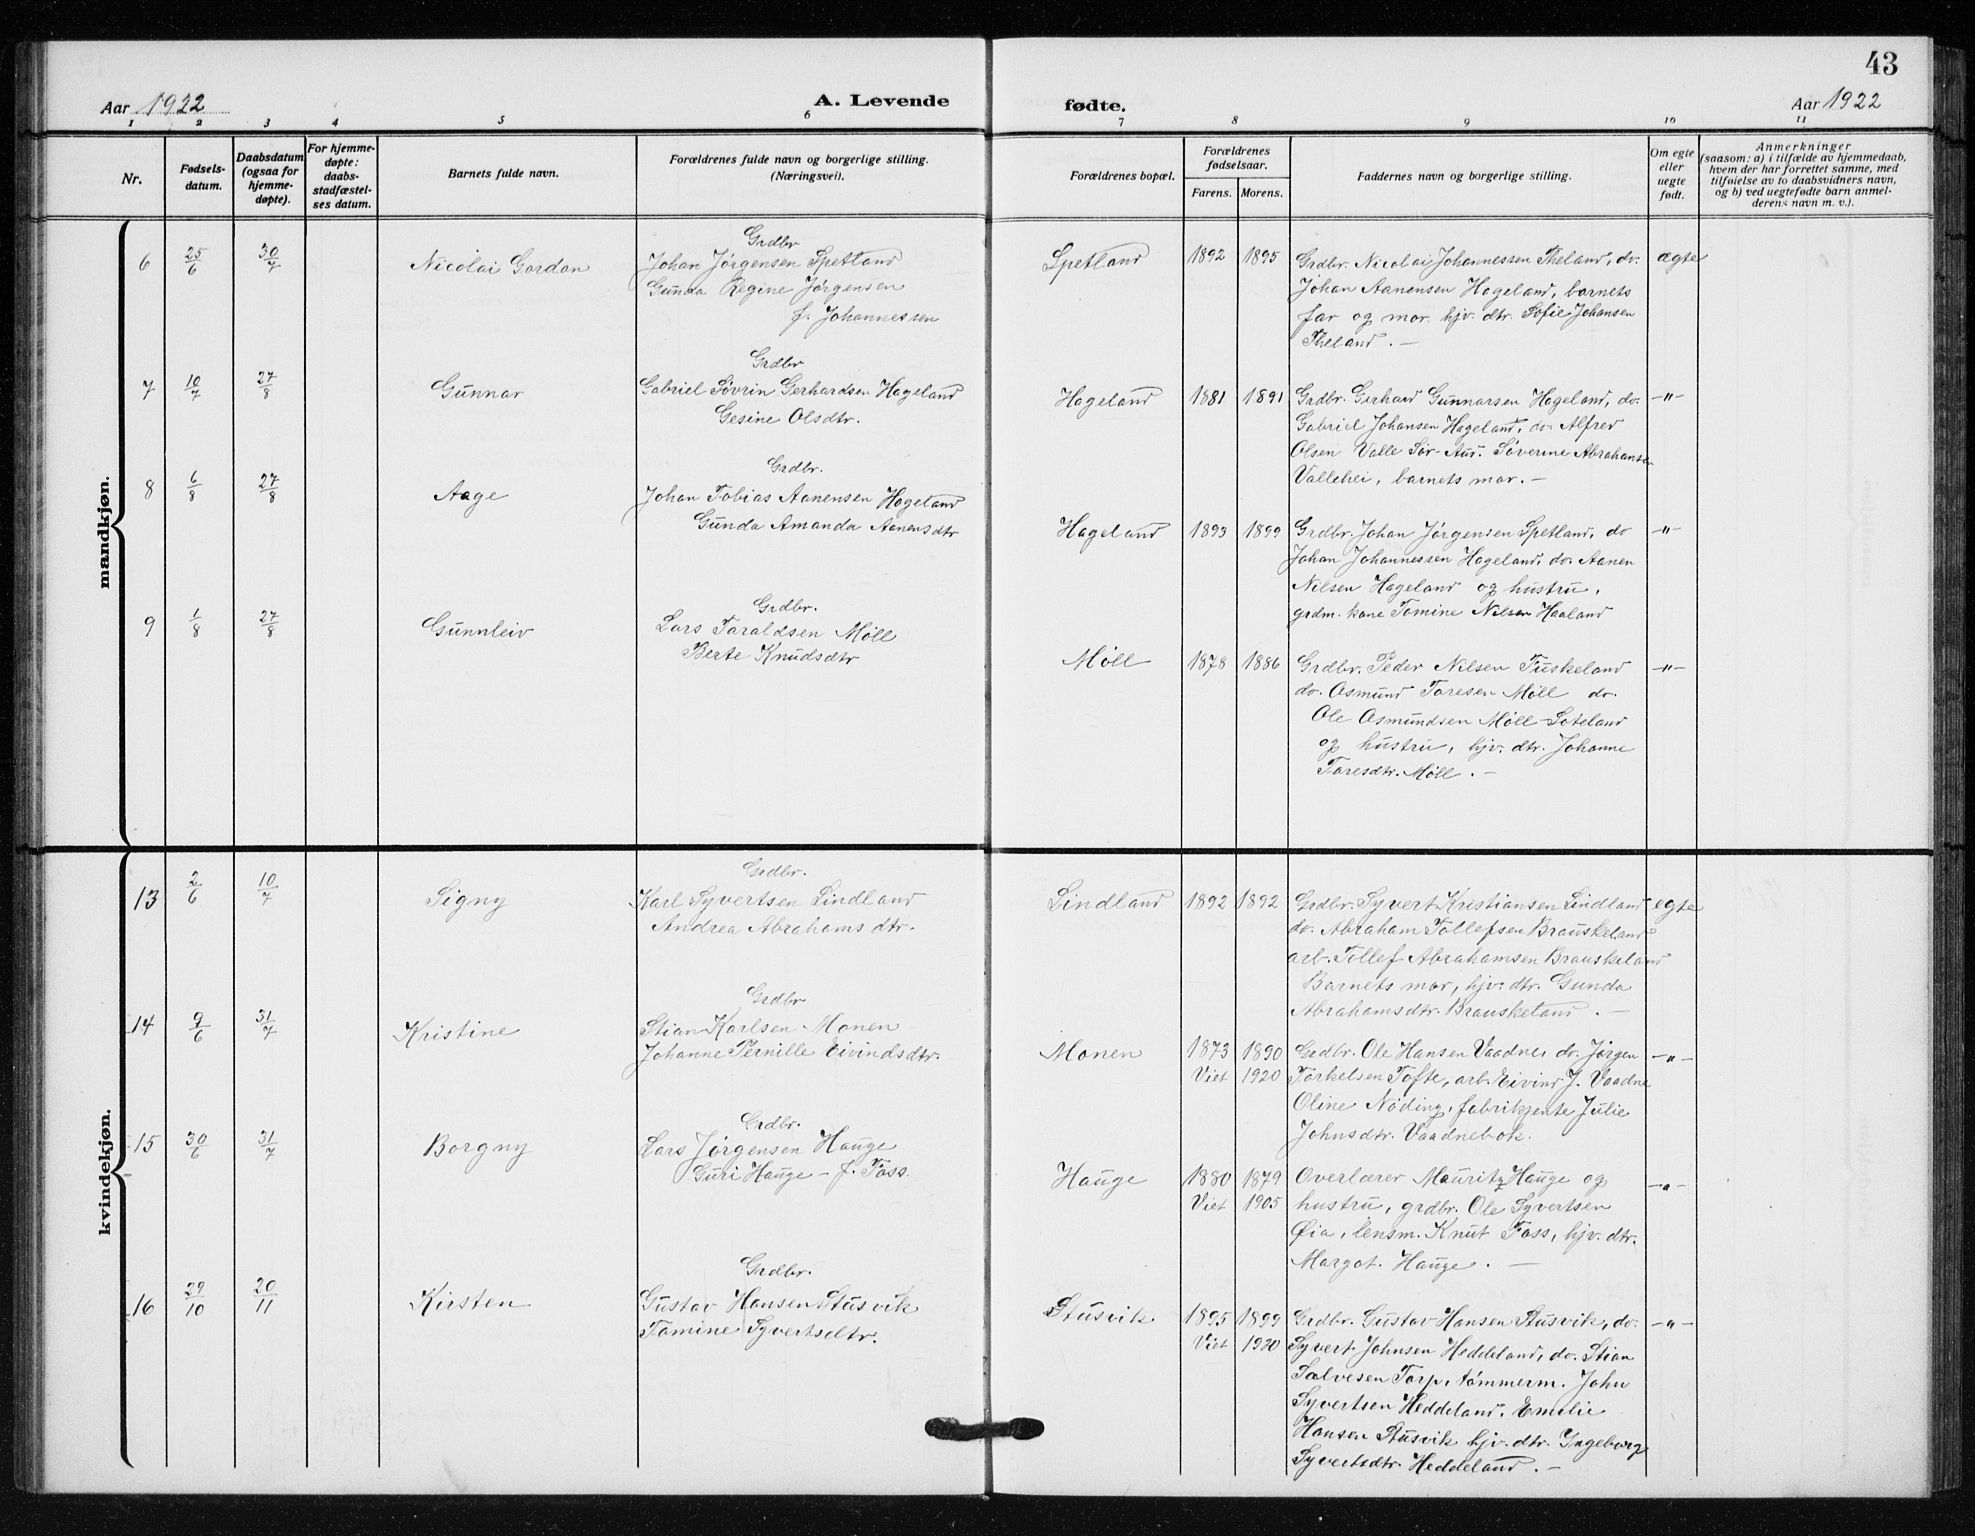 43
Aar 1922 A. Levende fødte. Aar 1922
1 2 3 4 5 6 7 8 9 10 11
Nr.
Fødsels-
datum.
Daabsdatum
(ogsaa for
hjemme-
døpte).
For hjemme-
døpte:
daabs-
stadfæstel-
ses datum.
Barnets fulde navn.
Forældrenes fulde navn og borgerlige stilling.
(Næringsvei).
Forældrenes bopæl.
Forældrenes
fødselsaar.
Farens. Morens.
Faddernes navn og borgerlige stilling.
Om egte
eller
uegte
født.
Anmerkninger
(saasom: a) i tilfælde av hjemmedaab,
hvem der har forrettet samme, med
tilføielse av to daabsvidners navn,
og b) ved uegtefødte barn anmel-
derens navn m. v.).
mandkjøn.
6 25/6 30/7 Nicolai Gordon
Grdbr
Johan Jørgensen Spetland
Gunda Regine Jørgensen
f. Johannessen
Spetland 1892 1895
Grdbr. Nicolai Johannessen Theland, do.
Johan Aanensen Hageland, barnets
far og mor. hjv. dtr. Sofie Johansen
Theland. —
ægte
7 10/7 27/8 Gunnar
Grdbr
Gabriel Søvrin Gerhardsen Hageland
Gesine Olsdtr.
Hageland 1881 1891
Grdbr. Gerhard Gunnarsen Hageland, do.
Gabriel Johansen Hageland, do. Alfred
Olsen Valle Sør-Aud. Søverine Abrahamsen
Vallehei, barnets mor. —
—"—
8 6/8 27/8 Aage
Grdbr.
Johan Tobias Aanensen Hageland
Gunda Amanda Aanensdtr
Hageland 1893 1899
Grdbr. Johan Jørgensen Spetland, do
Johan Johannessen Hageland, do. Aanen
Nilsen Hageland og hustru,
grdm. kone Tomine Nilsen Haaland
—"—
9 1/8 27/8 Gunnleiv
Grdbr.
Lars Taraldsen Møll
Berte Knudsdtr
Møll 1878 1886
Grdbr. Peder Nilsen Tuskeland
do. Osmund Toresen Møll do.
Ole Osmundsen Møll-Soteland
og hustru, hjv. dtr. Johanne
Toresdtr. Møll. —
—"—
kvindekjøn.
13 2/6 10/7 Signy
Grdbr.
Karl Syvertsen Lindland
Andrea Abrahamsdtr.
Lindland 1892 1892
Grdbr. Syvert Kristiansen Lindland
do. Abraham Tollefsen Brauskeland
arb. Tollef Abrahamsen Brauskeland
Barnets mor, hjv. dtr. Gunda
Abrahamsdtr. Brauskeland. —
egte
14 9/6 31/7 Kristine
Grdbr
Stian Karlsen Monen
Johanne Pernille Eivindsdtr.
Monen 1873 1890
Viet 1920
Grdbr. Ole Hansen Vaadne, do. Jørgen
Torkelsen Tofte, arb. Eivind J. Vaadne
Oline Nøding, fabrikjente Julie
Johnsdtr. Vaadnebok.
—"—
15 30/6 31/7 Borgny
Grdbr.
Lars Jørgensen Hauge
Guri Hauge – f. Foss.
Hauge 1880 1879
Viet 1905
Overlærer Mauritz Hauge og
hustru, grdbr. Ole Syvertsen
Øia, lensm. Knut Foss, hjv. dtr.
Margot. Hauge. —
—"—
16 29/10 20/11 Kirsten
Grdbr.
Gustav Hansen Stusvik
Tomine Syvertsdtr.
Stusvik 1895 1899
Viet 1920
Grdbr. Gustav Hansen Stusvik, do.
Syvert Johnsen Heddeland, do. Stian
Salvesen Torp, tømmerm. John
Syvertsen Heddeland, Emelie
Hansen Stusvik hjv. dtr. Ingeborg
Syvertsdtr. Heddeland. —
—"—